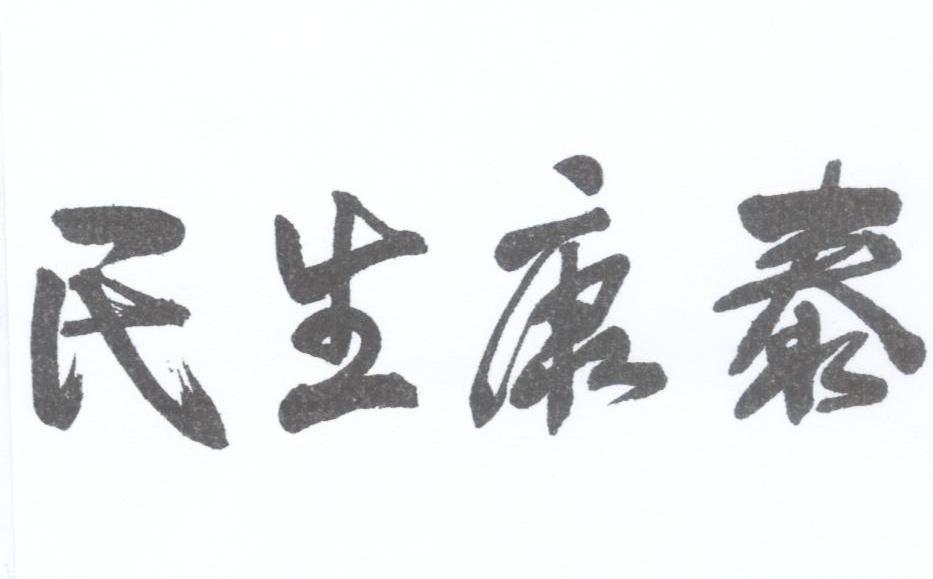 民生康泰